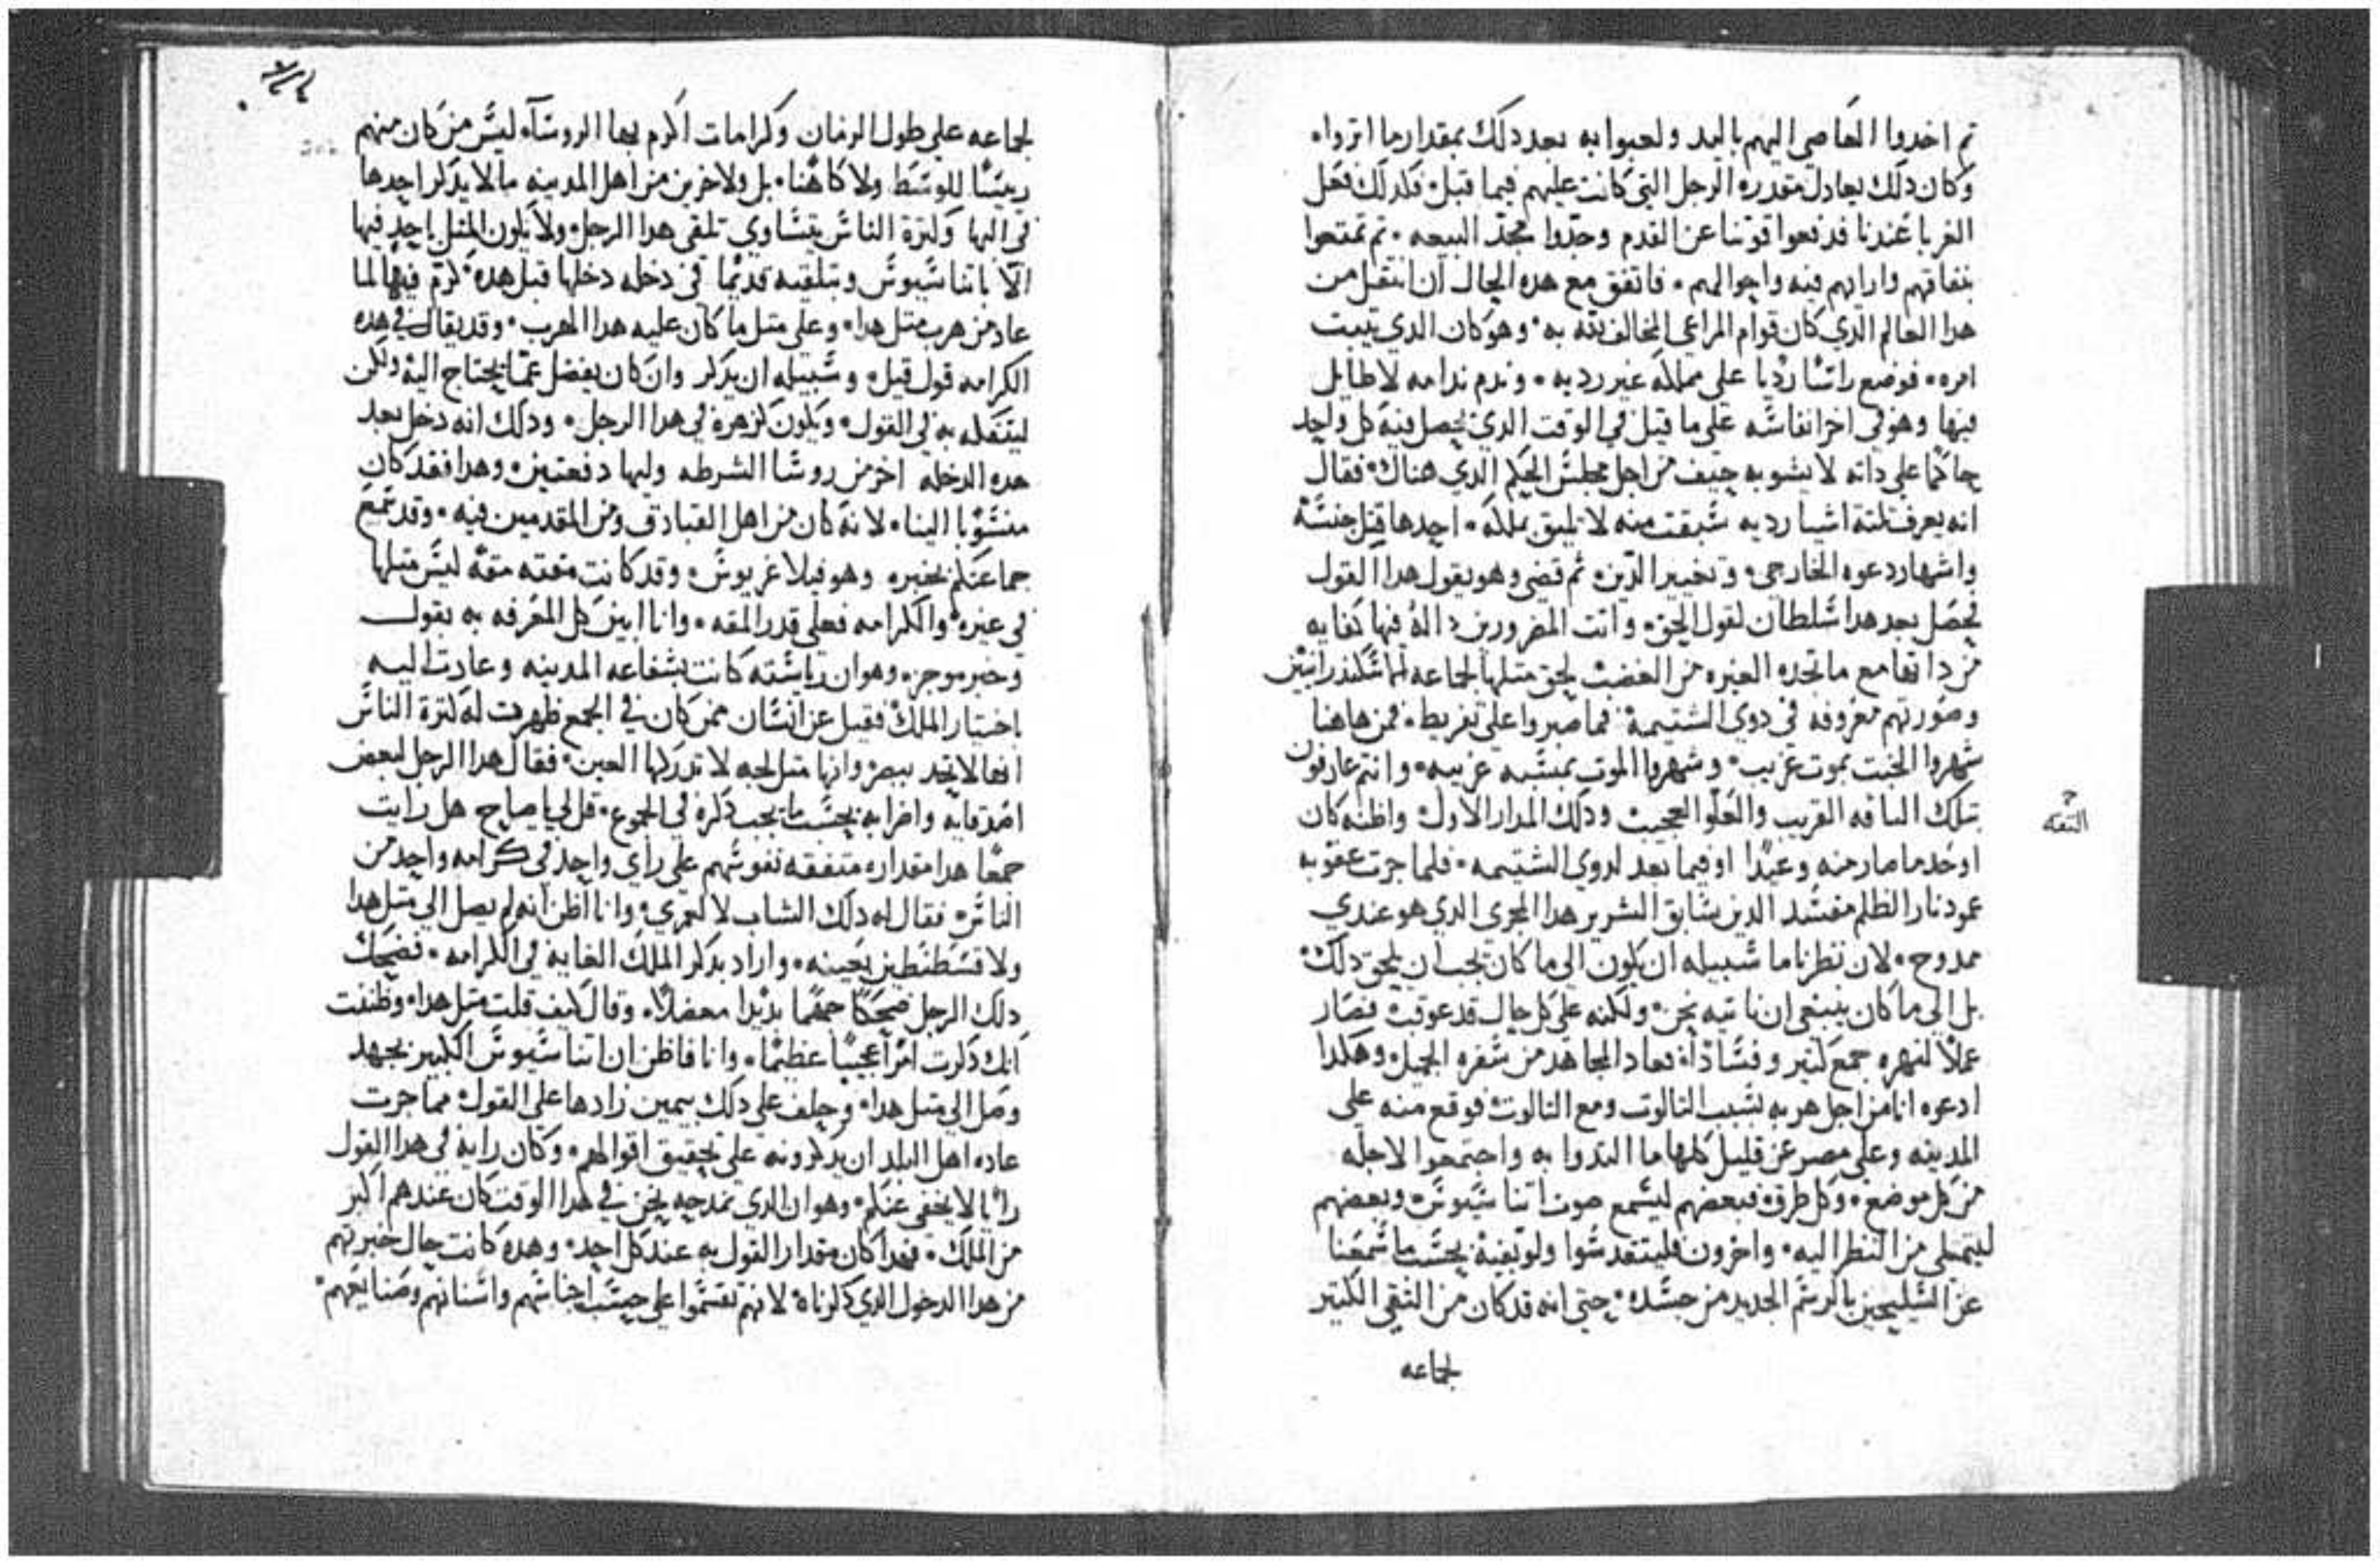 تم اخدوا العاصي اليهم باليد ولعبوا به بعد دلك بمقدار ما اتروا
وكان دلك يعادل مقدره الرجل التي كانت عليهم فيما قبل فكدلك فعل
الغربا عندنا فدفعوا قوتنا عن القدم وحدوا مجد البيعه تم تمتعوا
بنفاقهم وارايهم فيه واحوالهم فاتفق مع هده الحال ان انتقل من
هدا العالم الدي كان قوام المراعي المخالف بقه به وهو كان الدي تبت
امره فوضع راسًا رديا على مملكه غير رديه وندم ندامه لا طايل
فيها وهو في اخر انفاسه على ما قيل في الوقت الدي يحصل فيه كل واحد
حاكما على داته لا يشوبه حيف من اجل مجلس الحكم الدي هناك فقال
انه يعرف تلتة اشيا رديه سبقت منه لا تليق بملكه احدها قتل جنسه
واشهار دعوه الخارجي وتغيير الدين تم قضى وهو يقول هدا القول
فحصل بعد هدا سلطان لقول الحق وانت المضرورين داله فيها كفايه
من داتها مع ما تجده الغيره من الغضب لحق متلها لجماعه لما سكندرانيين
وصورتهم معروفه في دوي الشتيمة فما صبروا على تفريط فمن هاهنا
شهروا الخبت بموت غريب وشهروا الموت بمسبه غريبه وانتم عارفون
بتلك الناقه القريب والعلو العجيب ودلك المدار الاول واظنه كان
اوحد ما صار منه وعبدا او فيما بعد لدوي الشتيمه فلما جرت عقوبه
عمود نار الظلم مفسد الدين سابق الشرير هدا المجرى الدي هو عندي
ممدوح لان نظرنا ما سبيله ان يكون الى ما كان يجب ان يلحق دلك
بل الى ما كان ينبغي ان ناتيه نحن ولكنه على كل حال قد عوقب فصار
عملا لنهره جمع كتير وفسادا فعاد المجاهد من سفره الجميل وهكدا
ادعوه انا من اجل هربه بسبب التالوت ومع التالوت فوقع منه على
المدينه وعلى مصر عن قليل كلها ما التدوا به واجتمعوا لاجله
من كل موضع وكل طرف فبعضهم ليسمع صوت اتناسيوس وبعضهم
ليتملى من النظر اليه واخرون فليتقدسوا ولو بفيه بحسب ما سمعنا
عن السليحين بالرسم الجديد من جسده حتى انه قد كان من التقي الكتير
لجماعه
ح
التقه
لجماعه على طول الزمان وكرامات اكرم بها الروسآء ليس من كان منهم
رييسًا للوسط ولا كاهنا بل ولاخرين من اهل المدينه ما لا يدكر احدها
في البها وكترة الناس يتساوى تلقى هدا الرجل ولا يكون المتل باحد فيها
الا باتناسيوس وبتلقيه قديما في دخله دخلها قبل هده كرم فيها لما
عاد من هرب متل هدا وعلى متل ما كان عليه هدا الهرب وقد يقال في هده
الكرامه قول قيل وسبيله ان يدكر وان كان يفضل عما يحتاج اليه ولكن
ليتفكه به في القول ويكون كزهرة في هدا الرجل ودلك انه دخل بعد
هده الدخله اخر من روسا الشرطه وليها دفعتين وهدا فقد كان
منسوبا الينا لانه كان من اهل القبادق ومن المقدمين فيه وقد سمع
جماعتكم بخبره وهو فيلاغريوس وقد كانت مقته مقه ليس متلها
في غيره والكرامه فعلى قدر المقه وانا ابين كل المعرفه به بقول
وخبر موجز وهو ان رياسته كانت بشفاعه المدينه وعادت اليه
باختيار الملك فقيل عن انسان ممن كان في الجمع ظهرت له كترة الناس
انها لا تحد ببصر وانها متل لجه لا تدركها العين فقال هدا الرجل لبعض
اصدقايه واقرابه بحسب ما يجب دكره في الجموع قل لي يا صاح هل رايت
جمعا هدا مقداره متفقه نفوسهم على راي واحد في كرامه واحد من
الناس فقال له دلك الشاب لا لعمري وانا اظن انه لم يصل الى متل هدا
ولا قسطنطين بعينه واراد بدكر الملك الغايه في الكرامه فضحك
دلك الرجل ضحكا جهما بديدا معضلا وقال كيف قلت متل هدا وظننت
انك دكرت امرا عجيبا عظيما وانا فاظن ان اتناسيوس الكبير بجهد
وصل الى متل هدا وحلف على دلك بيمين زادها على القول مما جرت
عاده اهل البلد ان يدكرونه على تحقيق اقوالهم وكان رايه في هدا القول
رايا لا يخفى عنكم وهو ان الدي نمدحه نحن في هدا الوقت كان عندهم اكبر
من الملك فهدا كان مقدار القول به عند كل احد وهده كانت حال خبرتهم
من هدا الدخول الدي دكرناه لانهم تقسموا على حسب اجناسهم واسنانهم وصنايعهم